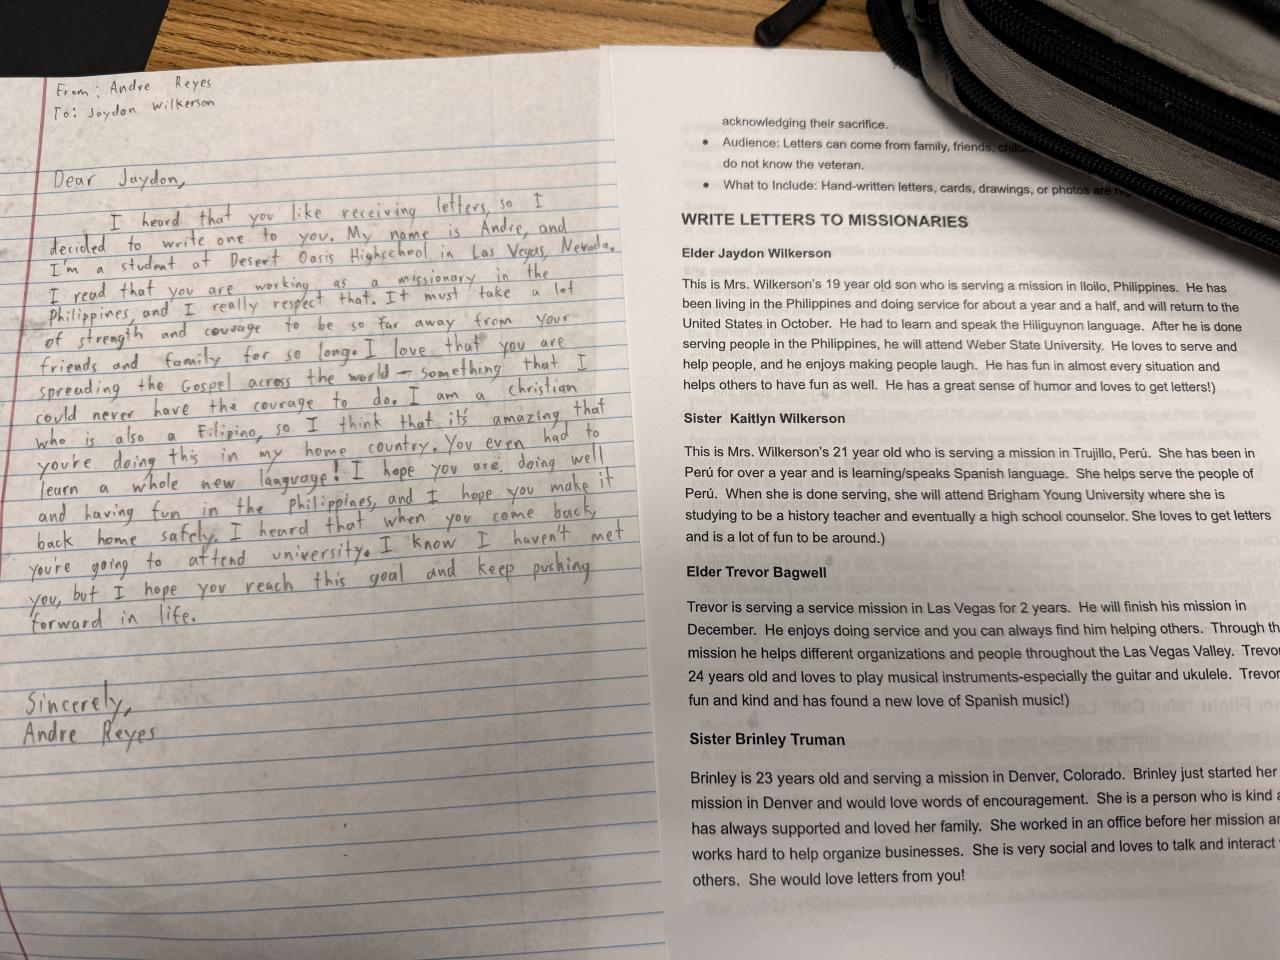 From: Andre Reyes
To: Jaydon Wilkerson
Dear Jaydon,
I heard that you like receiving letters, so I
decided to write one to you. My name is Andre, and
I'm a student at Desert Oasis Highschool in Las Vegas, Nevada.
I read that you are working as a missionary in the
Philippines, and I really respect that. It must take a lot
of strength and courage to be so far away from your
friends and family for so long. I love that you are
spreading the Gospel across the world – something that I
could never have the courage to do. I am a christian
who is also a Filipino, so I think that it's amazing that
you're doing this in my home country. You even had to
learn a whole new language! I hope you are doing well
and having fun in the Philippines, and I hope you make it
back home safely. I heard that when you come back,
you're going to attend university. I know I haven't met
you, but I hope you reach this goal and keep pushing
forward in life.
Sincerely,
Andre Reyes
acknowledging their sacrifice.
• Audience: Letters can come from family, friends,
do not know the veteran.
• What to Include: Hand-written letters, cards, drawings, or photos are
WRITE LETTERS TO MISSIONARIES
Elder Jaydon Wilkerson
This is Mrs. Wilkerson's 19 year old son who is serving a mission in Iloilo, Philippines. He has
been living in the Philippines and doing service for about a year and a half, and will return to the
United States in October. He had to learn and speak the Hiliguynon language. After he is done
serving people in the Philippines, he will attend Weber State University. He loves to serve and
help people, and he enjoys making people laugh. He has fun in almost every situation and
helps others to have fun as well. He has a great sense of humor and loves to get letters!)
Sister Kaitlyn Wilkerson
This is Mrs. Wilkerson's 21 year old who is serving a mission in Trujillo, Perú. She has been in
Perú for over a year and is learning/speaks Spanish language. She helps serve the people of
Perú. When she is done serving, she will attend Brigham Young University where she is
studying to be a history teacher and eventually a high school counselor. She loves to get letters
and is a lot of fun to be around.)
Elder Trevor Bagwell
Trevor is serving a service mission in Las Vegas for 2 years. He will finish his mission in
December. He enjoys doing service and you can always find him helping others. Through
mission he helps different organizations and people throughout the Las Vegas Valley.
24 years old and loves to play musical instruments-especially the guitar and ukulele.
fun and kind and has found a new love of Spanish music!)
Sister Brinley Truman
Brinley is 23 years old and serving a mission in Denver, Colorado. Brinley just started her
mission in Denver and would love words of encouragement. She is a person who is kind
has always supported and loved her family. She worked in an office before her mission
works hard to help organize businesses. She is very social and loves to talk and interact
others. She would love letters from you!